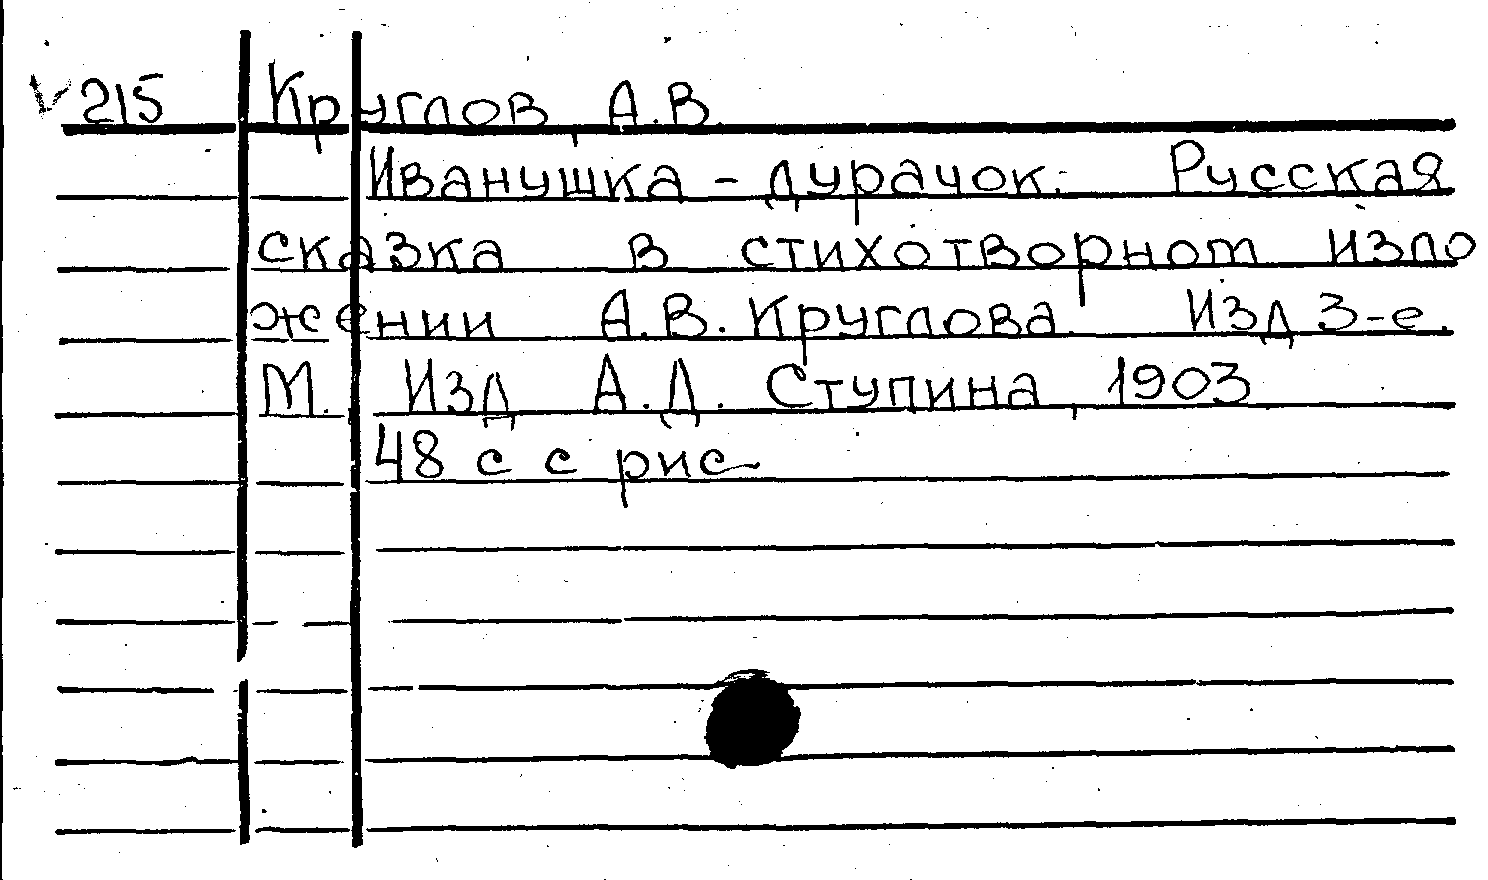 V 215 Круглов, А.В.
Иванушка - дурачок. Русская
сказка в стихотворном изло
жении А.В. Круглова. Изд 3-е.
М. Изд А.Д. Ступина, 1903
48 с с рис